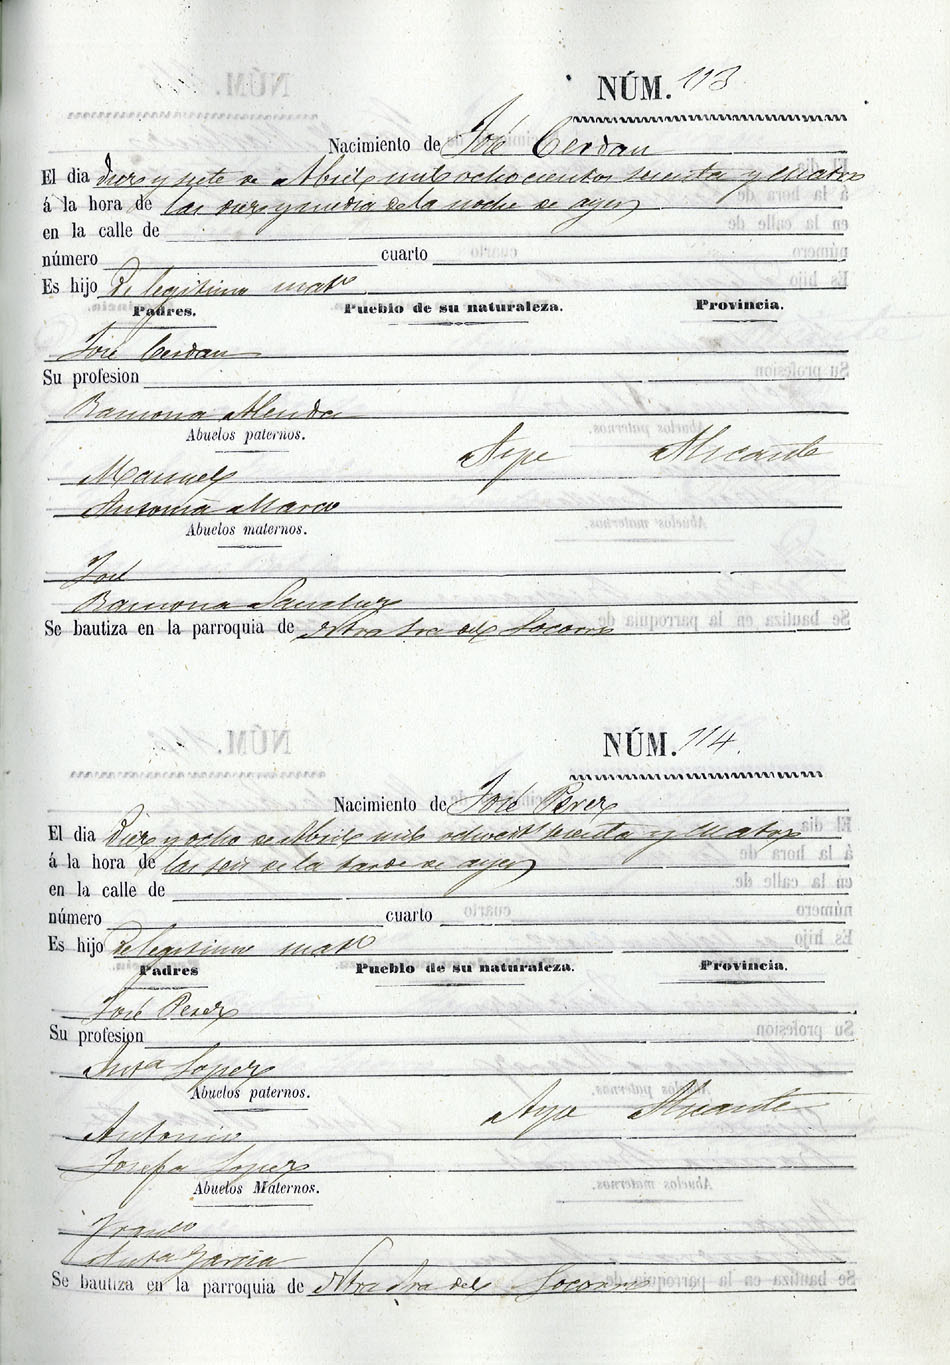 NÚM. 113
Nacimiento de José Cerdan
El dia diez y siete de Abril mil ochocientos sesenta y cuatro
á la hora de las doce y media de la noche de ayer
en la calle de
número cuarto
Es hijo de legitimo mat.º
Padres. Pueblo de su naturaleza. Provincia.
José Cerdan
Su profesion
Ramona Alenda
Abuelos paternos.
Manuel Aspe Alicante
Antonia Marco
Abuelos maternos.
José
Ramona Sanchez
Se bautiza en la parroquia de Ntra Sra del Socorro
NÚM. 114.
Nacimiento de José Perez
El dia Diez y ocho de Abril mil ochoc.tos sesenta y cuatro
á la hora de las seis de la tarde de ayer
en la calle de
número cuarto
Es hijo de legitimo mat.º
Padres Pueblo de su naturaleza. Provincia.
José Perez
Su profesion
Ant.ª Lopez
Abuelos paternos.
Antonio Aspe Alicante
Josefa Lopez
Abuelos Maternos.
Fran.co
Ant.ª Garcia
Se bautiza en la parroquia de Ntra Sra del Socorro